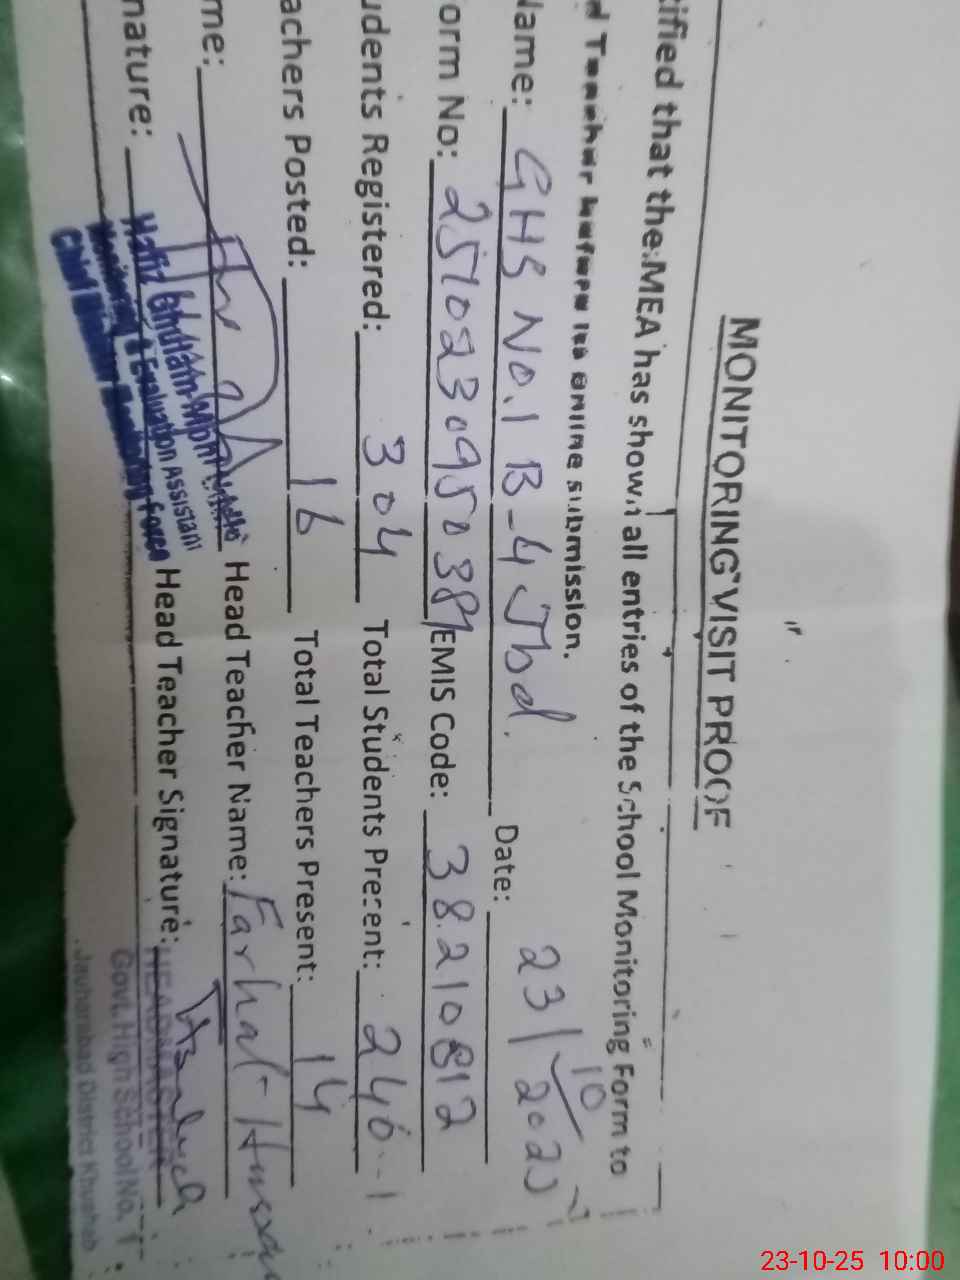 MONITORING VISIT PROOF
tified that the MEA has shown all entries of the School Monitoring Form to
d Teacher before its online submission.
Name: GHS No.1 B-4 Jbd. Date: 23/10/2025
orm No: EMIS Code: 38210812
udents Registered: 304 Total Students Present: 240
achers Posted: 16 Total Teachers Present: 14
me: Head Teacher Name: Farhat Hussain
nature: Head Teacher Signature:
Hafiz Ghulam
Monitoring & Evaluation Assistant
Chief Monitoring Force
HEADMASTER
Govt. High School No. 1
Jauharabad District Khushab
23-10-25 10:00